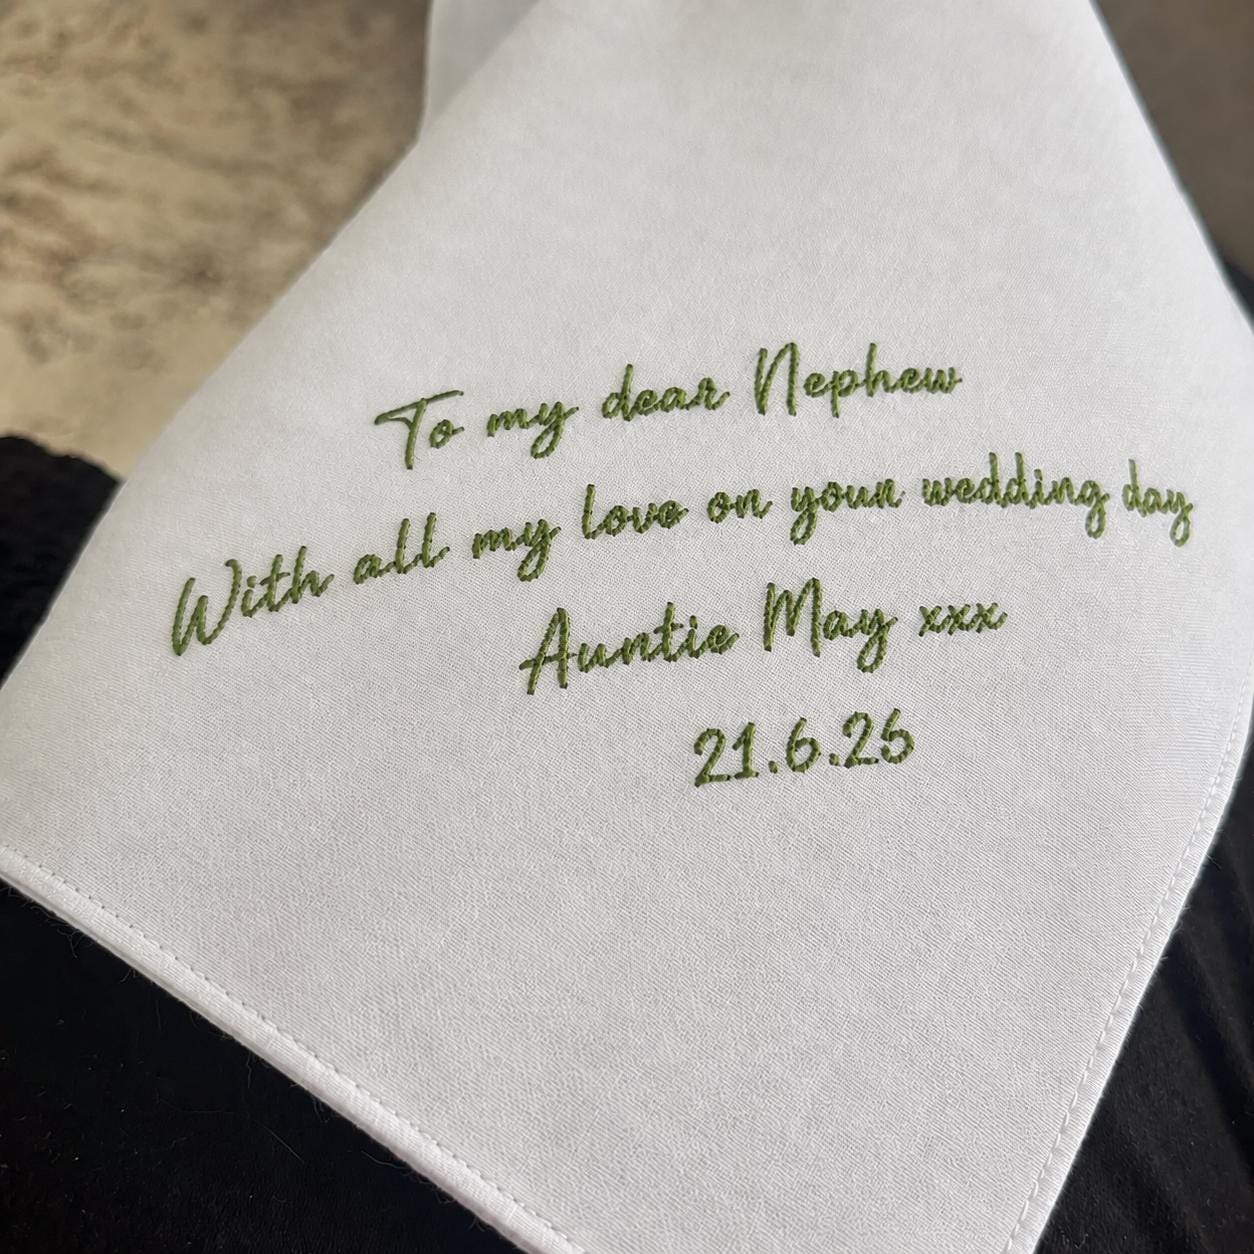 To my dear Nephew
With all my love on your wedding day
Auntie May xxx
21.6.25